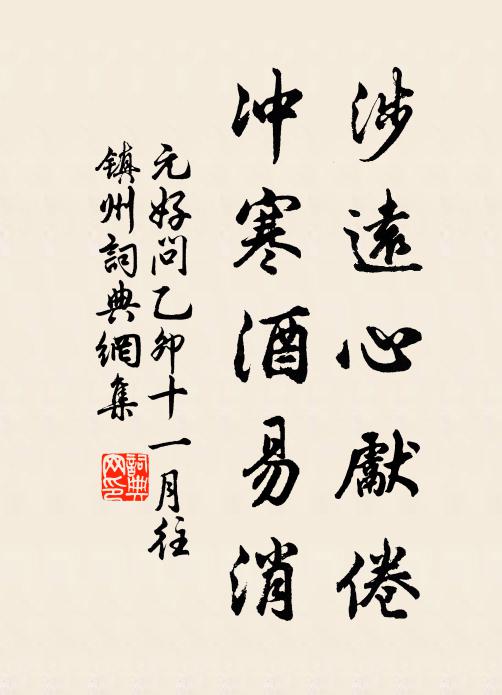 涉遠心獻倦
冲寒酒易消
元好問乙卯十一月往
鎮州詞典網集
詞典
网印